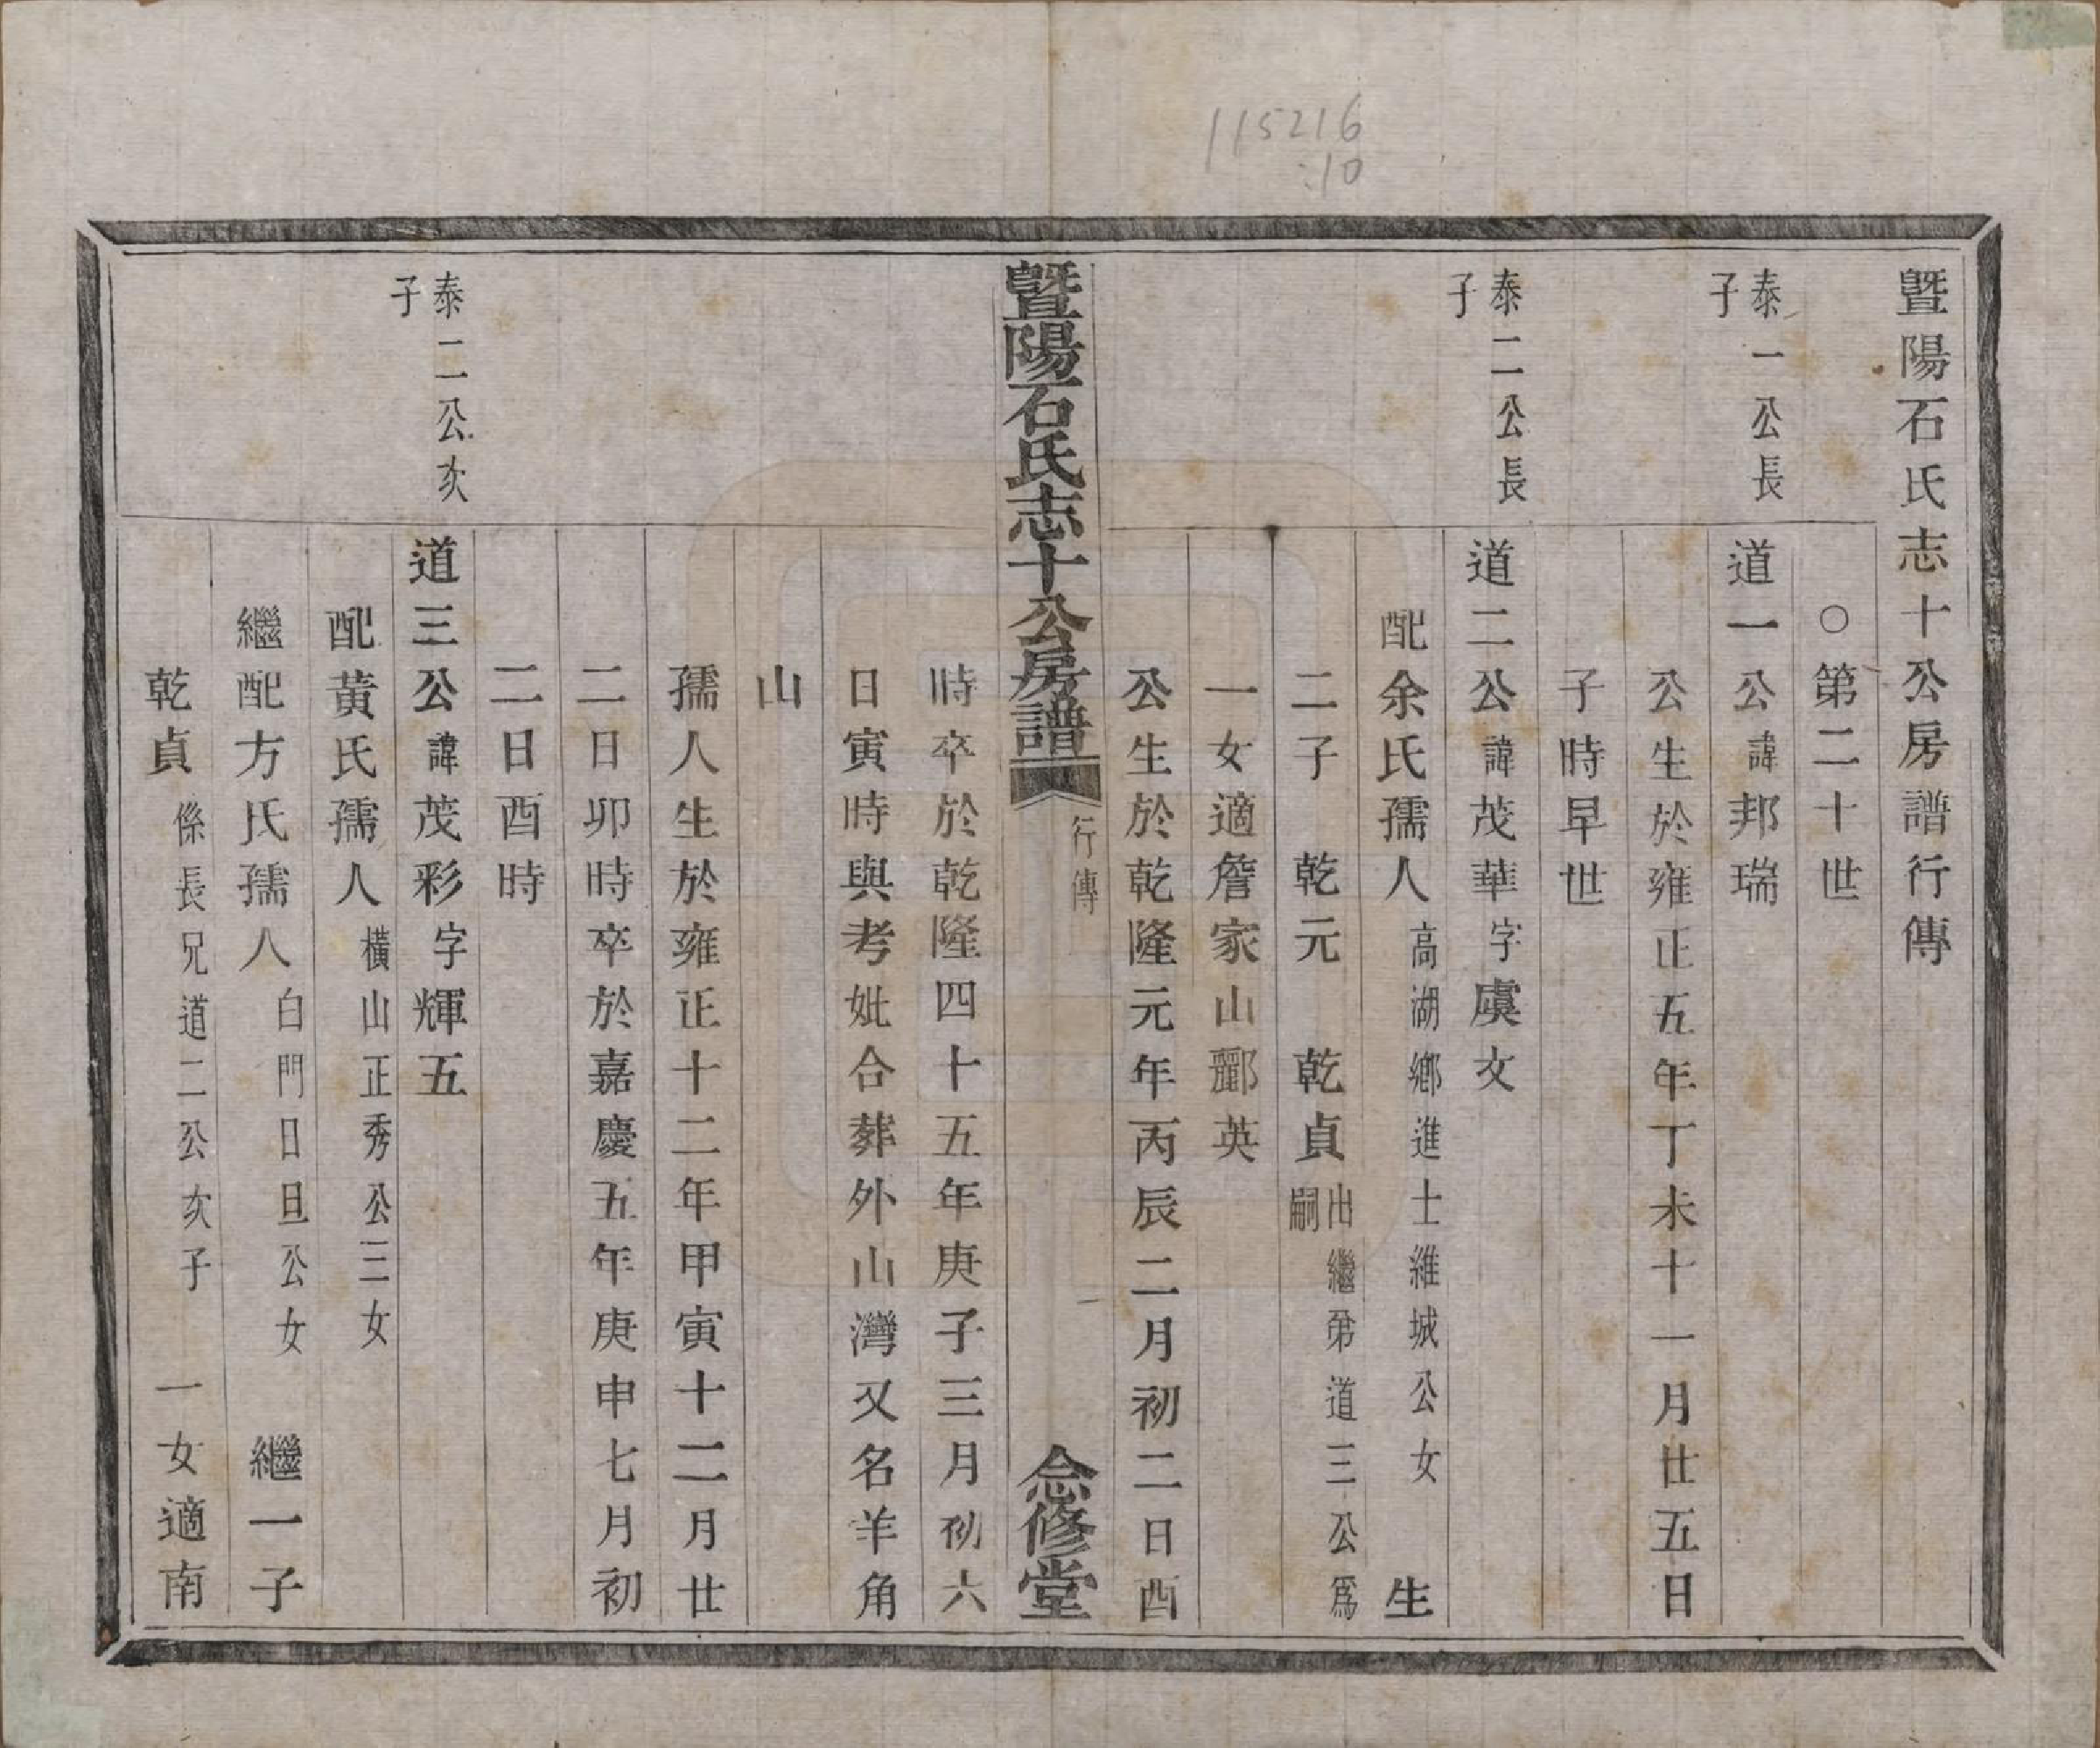 115216
:10
暨陽石氏志十公房譜行傳
○第二十世
泰一公長子
道一公諱邦瑞
公生於雍正五年丁未十一月廿五日
子時早世
泰二公長子
道二公諱茂華字虞文
配余氏孺人高湖鄉進士維城公女 生
二子 乾元 乾貞出繼弟道三公爲嗣
一女適詹家山酈英
公生於乾隆元年丙辰二月初二日酉
暨陽石氏志十公房譜 行傳 念修堂
時卒於乾隆四十五年庚子三月初六
日寅時與考妣合葬外山灣又名羊角
山
孺人生於雍正十二年甲寅十二月廿
二日卯時卒於嘉慶五年庚申七月初
二日酉時
泰二公次子
道三公諱茂彩字輝五
配黃氏孺人橫山正秀公三女
繼配方氏孺人白門日旦公女 繼一子
乾貞係長兄道二公次子 一女適南